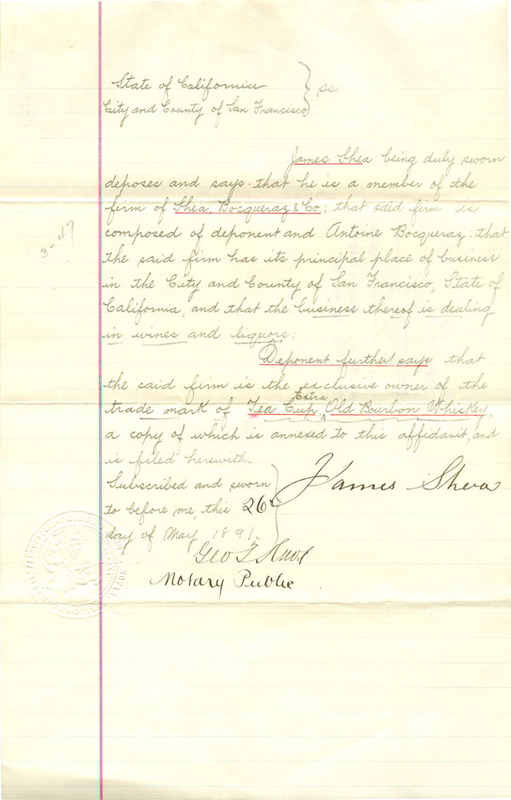 State of California } ss.
City and County of San Francisco
James Shea being duly sworn
deposes and says that he is a member of the
firm of Shea, Bocqueraz & Co; that said firm is
composed of deponent and Antoine Bocqueraz: that
the said firm has its principal place of business
in the City and County of San Francisco, State of
California, and that the business thereof is dealing
in wines and liquors:
Deponent further says that
the said firm is the exclusive owner of the
trade mark of Tea Cup Extra Old Bourbon Whiskey,
a copy of which is annexed to this affidavit, and
is filed herewith.
Subscribed and sworn
to before me, this 26
day of May 1891.
James Shea
Geo T Knox
Notary Public
3-47